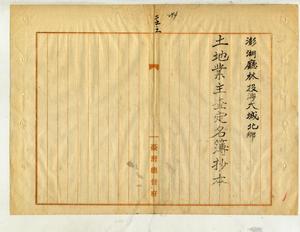 澎湖廳林投澳大城北鄉
土地業主查定名簿抄本
臺灣總督府